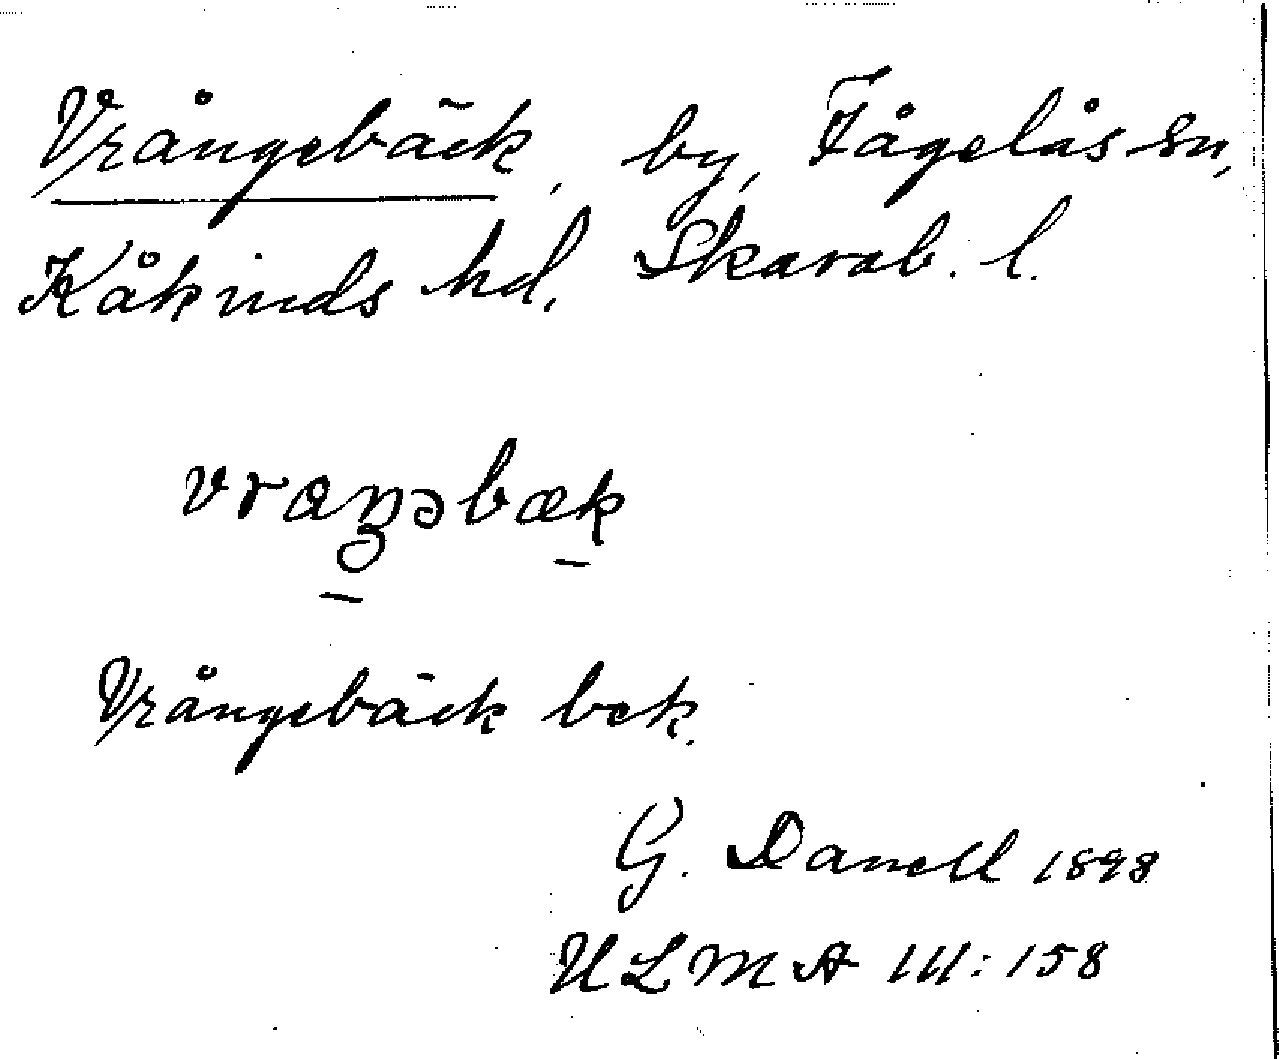 Vrångebäck, by, Fågelås sn,
Kåkinds hd, Skarab. l.
Vrångebäck bek.
G. Danell 1898
ULMA 111:158